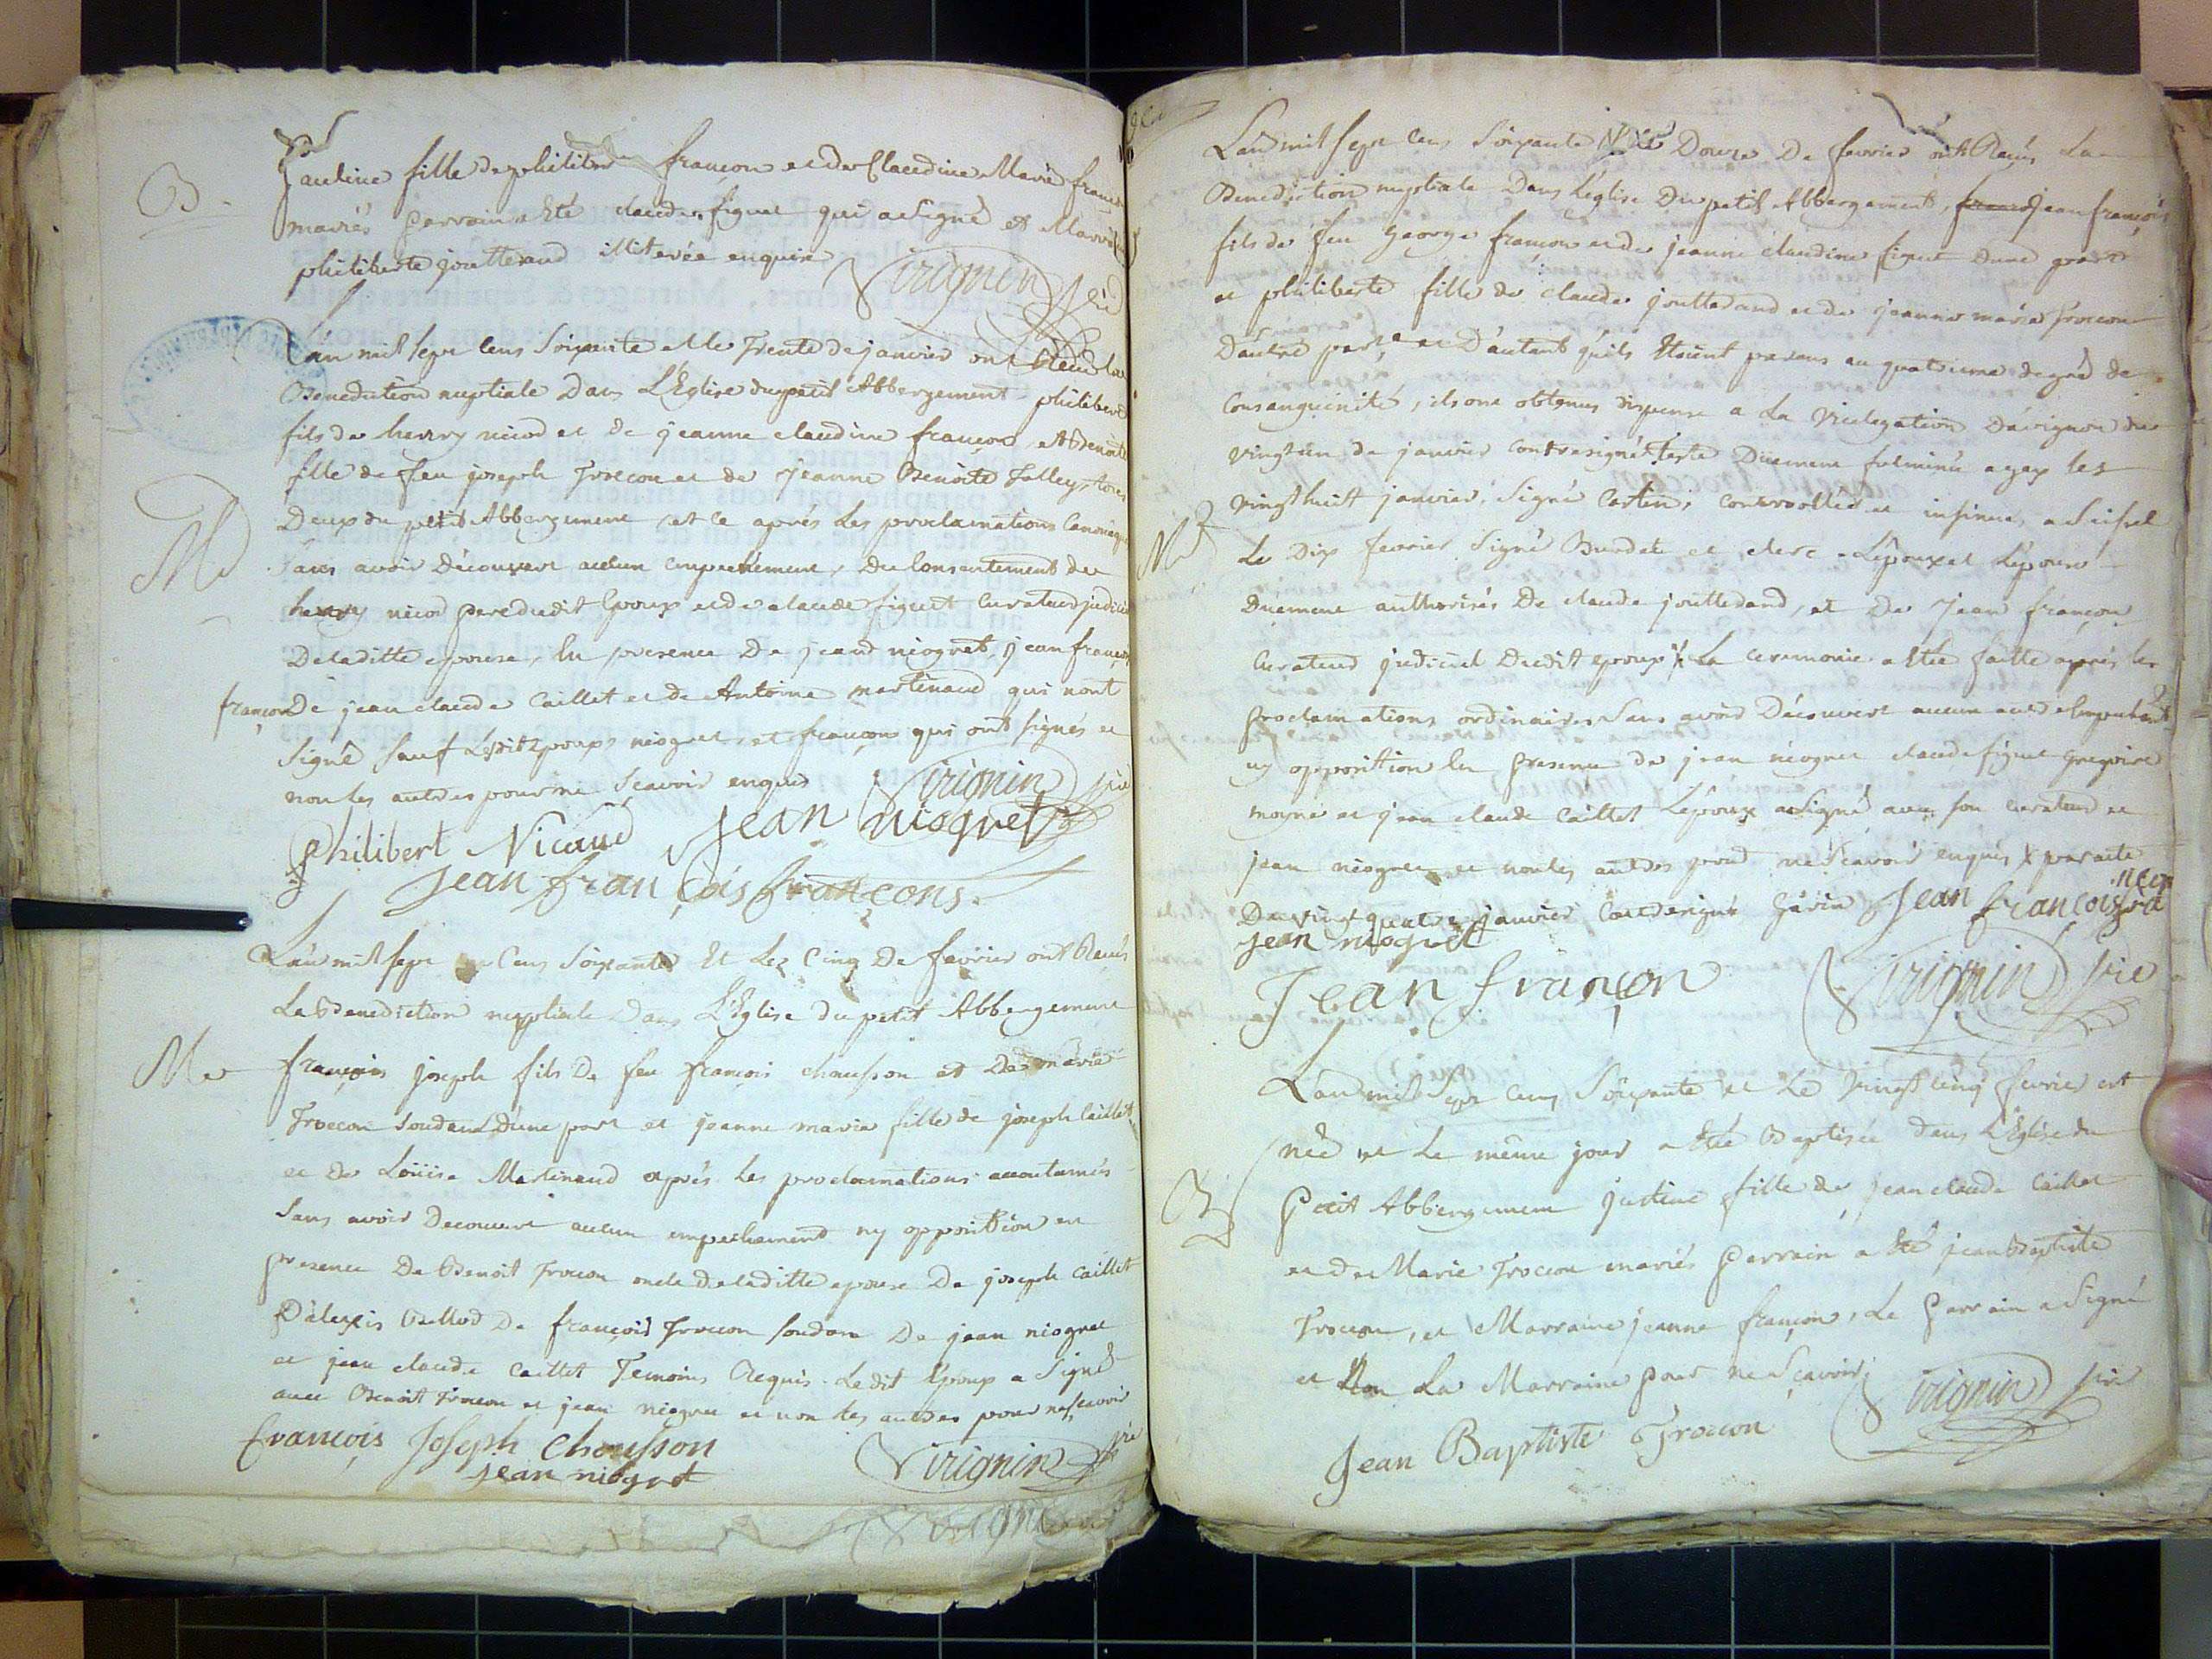 B.
Pauline fille de philibert françon et de Claudine Marie françon
mariés parrain a Eté claude figuet qui a signé et Marraine
philiberte joutterand illiterée enquise
Virignin
L'an mil sept cens soixante et le Trente de janvier ont Recu la
Benediction nuptiale dans L'Eglise du petit Abbergement philibert
fils de henry nicod et de jeanne claudine françon, et Benoite
fille de feu joseph Troccon et de jeanne Benoite Falley, tous
Deux du petit Abbergement, et ce aprés Les proclamations Canoniques
M
sans avoir découvert aucun empechement, Du consentement de
henry nicod pere dudit Epoux et de claude figuet curateur judiciel
De laditte epouse, En presence De jean niogret, jean françois
françon De jean claude Caillet et de Antoine martinaud qui n'ont
signé sauf Lesdit Epoux niogret et françon qui ont signés et
non les autres pour ne scavoir enquis Virignin
Philibert Nicaud jean niogret
jean françois françons.
L'an mil sept Cens soixante Et Le Cinq De fevrier ont Recus
La Benediction nuptiale Dans L'Eglise du petit Abbergement
M
françois joseph fils De feu françois chausson et De marie
Troccon soudan D'une part et jeanne marie fille de joseph Caillet
et de Loüise Martinaud aprés les proclamations accoutumés
sans avoir Decouvert aucun empechement ny opposition en
presence De Benoit Troccon oncle De laditte epouse De joseph Caillet
D'alexis De françois Troccon soudan De jean niogret
et jean claude Caillet Temoins Requis. Ledit Epoux a signé
avec Benoit Troccon et jean niogret et non les autres pour ne scavoir
françois Joseph Chousson
jean niogret Virignin
L'an mil sept cens soixante et le Douze De fevrier ont Recus La
Benediction nuptiale Dans L'eglise Du petit Abbergement, jean françois
fils de feu George françon et de jeanne claudine figuet d'une part
et philiberte fille de claude joutterand et de jeanne marie Troccon
D'autre part et D'autant qu'ils Etoient parens au quatrieme degré de
Consanguinité, ils ont obtenus dispense a La Vicelegation D'avignon du
vingt un de janvier contresigné Teste Duement fulminée a gex les
vingt huit janvier, signé Castin, controollée et insinuée a Seissel
M
Le Dix fevrier signé Burdet et clerc Lepoux et L'epouse
Duement authorisés De claude jouttedand, et De jean françon
Curateur judiciel Dudit epoux La ceremonie a Etée faitte aprés les
proclamations ordinaires sans avoir Découvert aucun empechement
ny opposition En presence de jean niogret claude figuet gregoire
moyne et jean claude Caillet L'epoux a signé avec son curateur et
jean niogret et non les autres pour ne scavoir enquis par acte
Du vingt quatre janvier jean françois
jean niogret
Jean françon Virignin
L'an mil sept cens soixante et Le Vingt cinq fevrier est
née et Le même jour a Eté Baptisée dans L'Eglise du
B
Petit Abbergement justine fille de jean claude Caillet
et de Marie Troccon mariés Parrain a Eté jean Baptiste
Troccon, et Marraine jeanne françon, Le Parrain a signé
et Non La Marraine pour ne Scavoir Virignin
Jean Baptiste Troccon